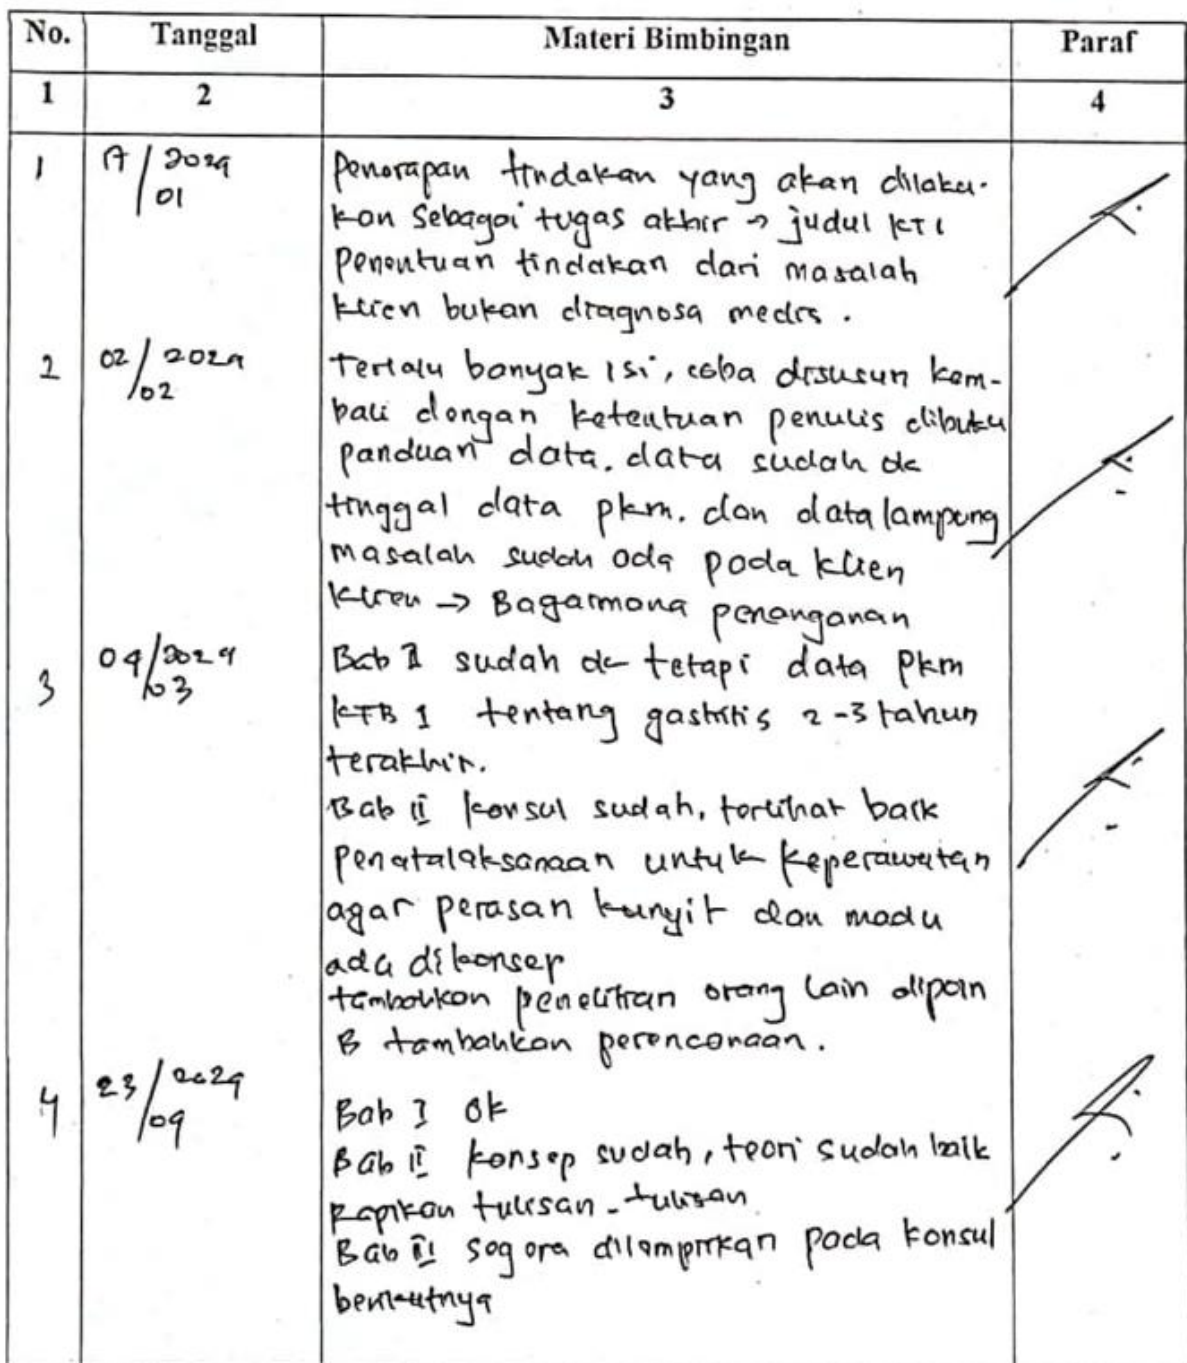 No. Tanggal Materi Bimbingan Paraf
1 2 3 4
1 17/2024 Penerapan tindakan yang akan dilaku-
01 kan sebagai tugas akhir → judul KTI
Penentuan tindakan dari masalah
klien bukan diagnosa medis.
2 02/2024 Terlalu banyak isi, coba disusun kem-
02 bali dengan ketentuan penulis dibuku
panduan data. data sudah ok
tinggal data pkm. dan data lampung
masalah sudah ada pada klien
klien → Bagaimana penanganan
3 04/2024 Bab I sudah ok tetapi data Pkm
03 KTB 1 tentang gastritis 2-3 tahun
terakhir.
Bab II konsul sudah, terlihat baik
Penatalaksanaan untuk keperawatan
agar perasan kunyit dan madu
ada dikonsep
tambahkan penelitian orang lain dipoin
B tambahkan perencanaan.
4 23/2024
04 Bab I ok
Bab II konsep sudah, teori sudah baik
Rapikan tulisan-tulisan
Bab III segera dilampirkan pada konsul
berikutnya